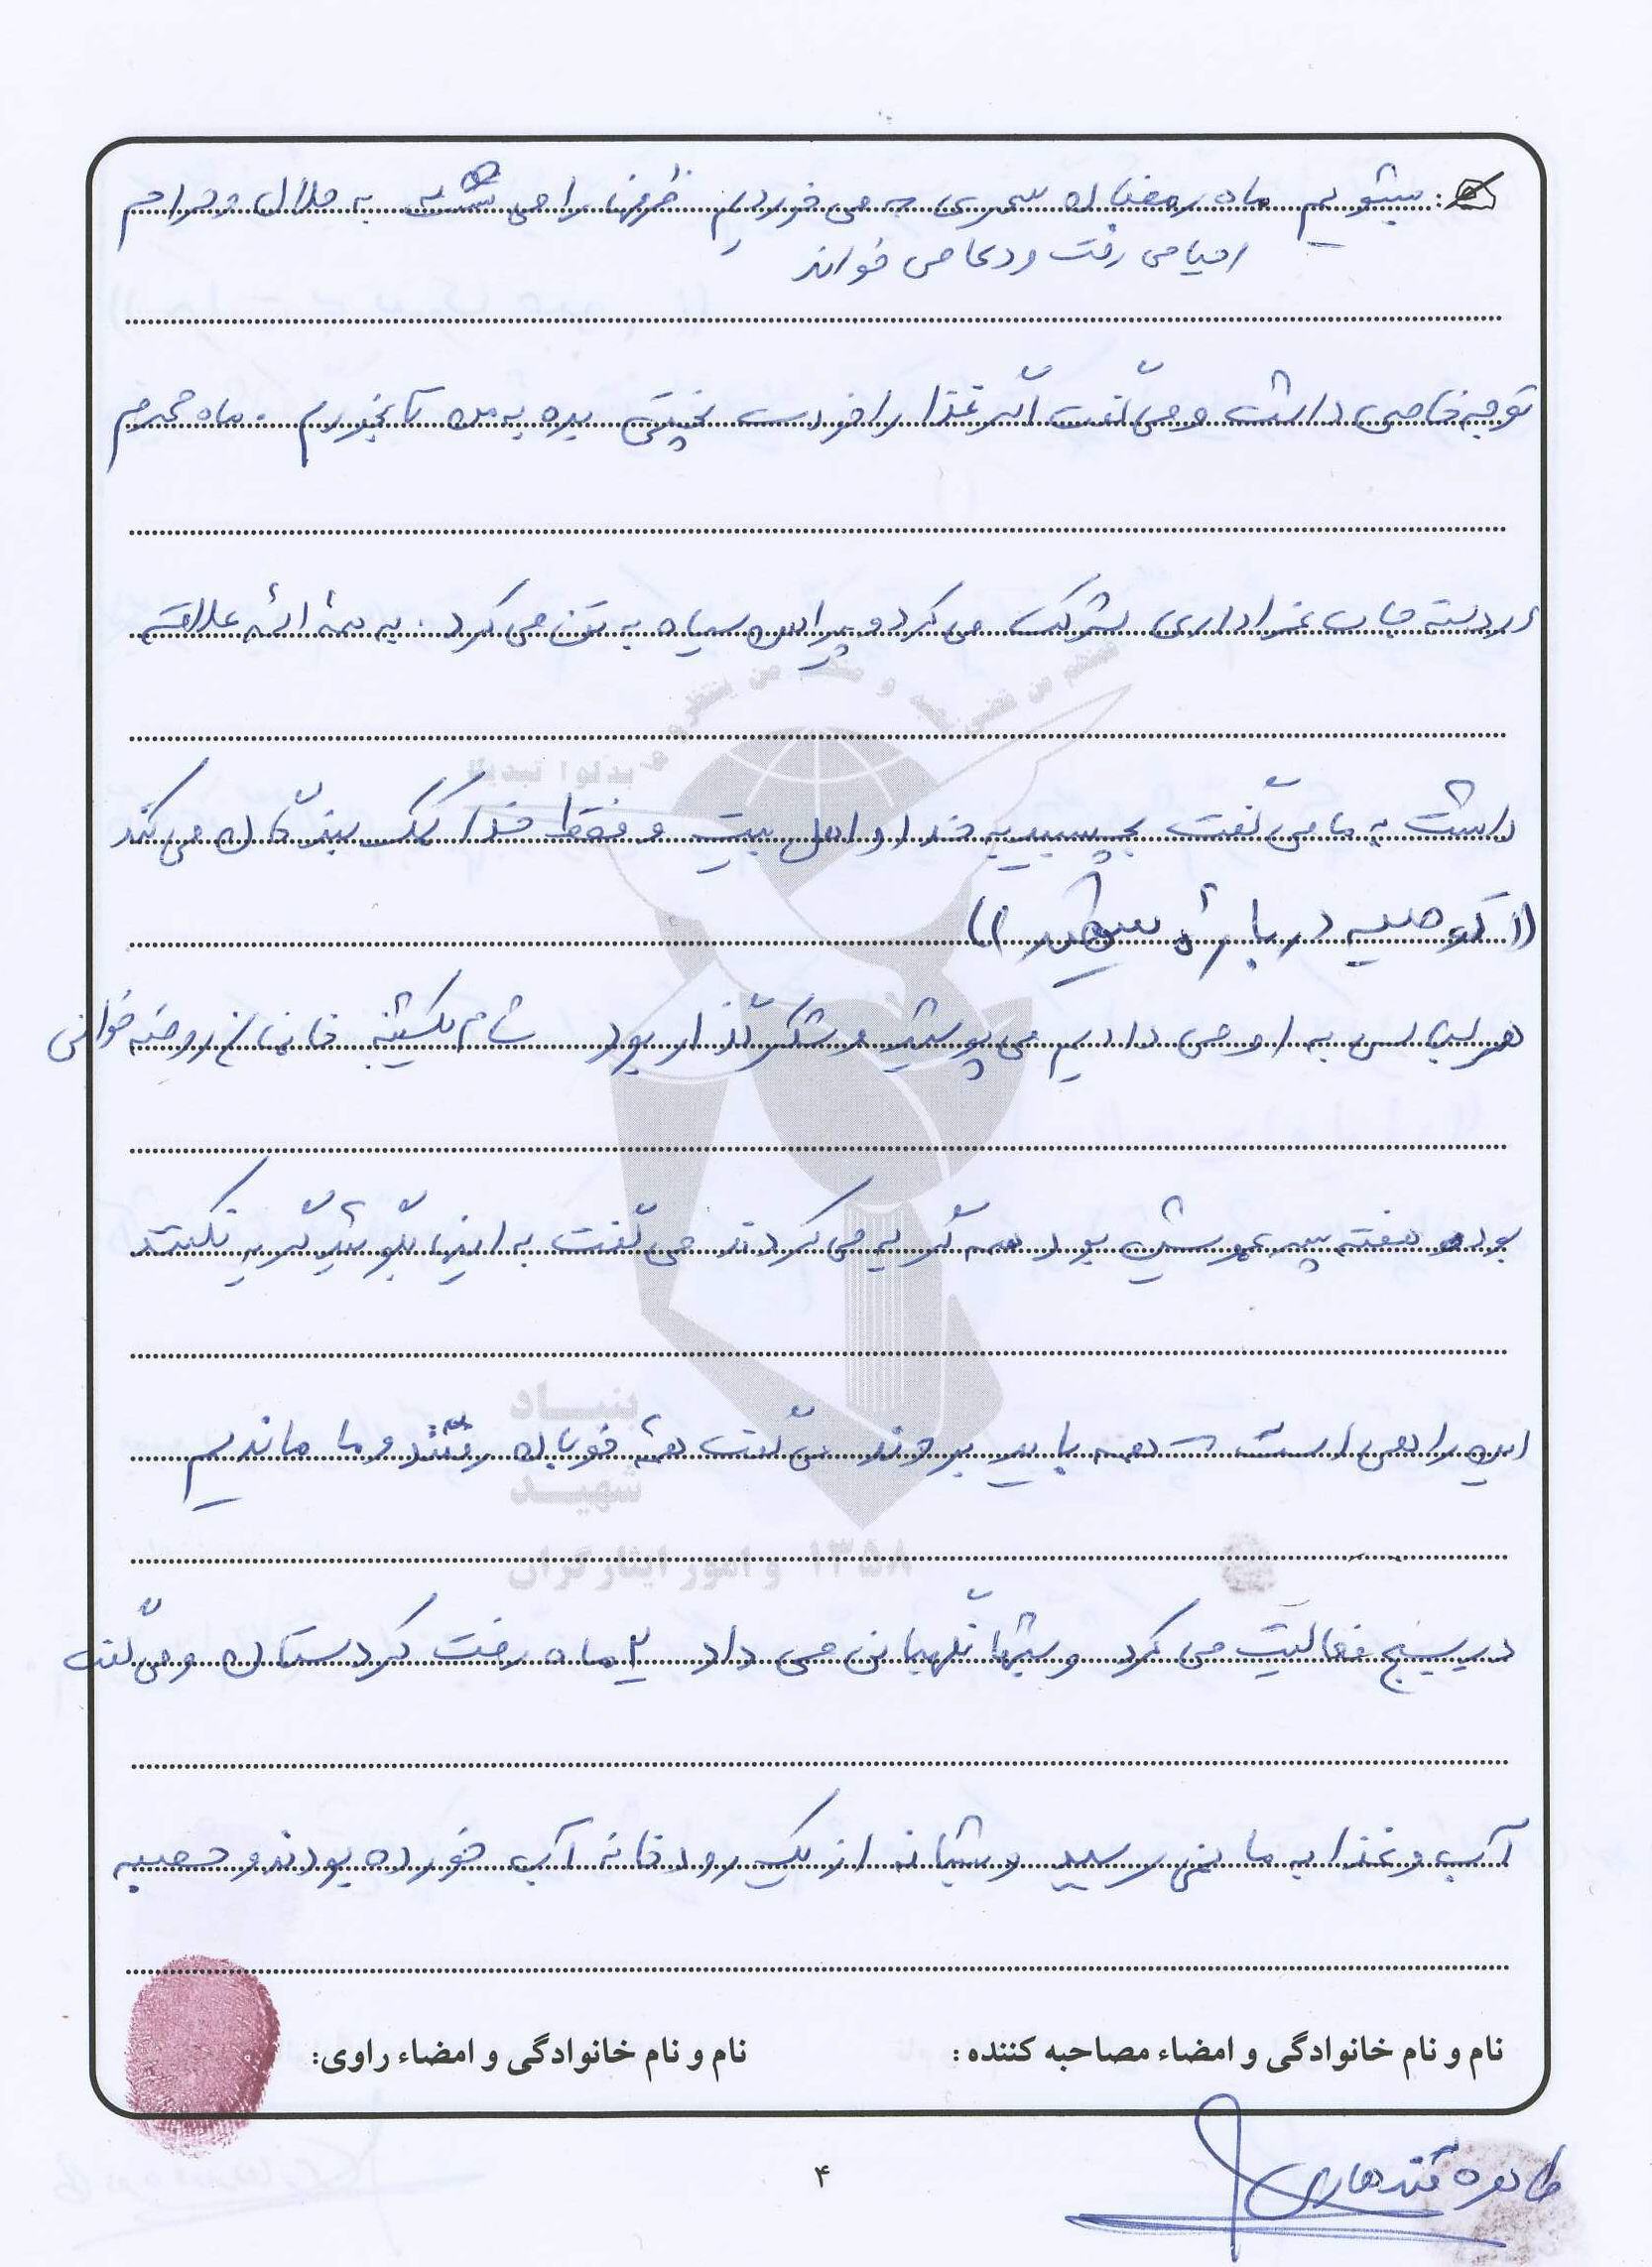 : بشویم ماه رمضان سحری که می خوردیم ظرفها را می شست به حلال و حرام
احیا می رفت و دعا می خواند
توجه خاصی داشت و می گفت اگر غذا را خودت پختی بده به من تا بخورم . ماه محرم
در دسته جات عزاداری شرکت می کرد و پیراهن سیاه به تن می کرد . به همه ائمه علاقه
داشت به ما می گفت بچسبید به خدا و اهل بیت و فقط خدا کمک بندگان می کند
((توصیه درباره شهید))
هر لباس به او می دادیم می پوشید و شکرگذار بود شام یکشنبه خانمان روضه خوانی
بود و هفته پسر عمویش بود همه گریه می کردند می گفت به اینها بگوئید گریه نکنند
این راهی است که همه باید بروند می گفت همه خوبان رفتند و ما ماندیم
در بسیج فعالیت می کرد و شبها نگهبانی می داد ۲ ماه رفت کردستان و می گفت
آب و غذا به ما نمی رسید و شبانه از یک رودخانه آب خورده بودند و صبح
منتظر و ما بدلوا تبدیلا
بنیاد
شهید
و امور ایثارگران ۱۳۵۸
نام و نام خانوادگی و امضاء مصاحبه کننده : نام و نام خانوادگی و امضاء راوی:
۴
طاهره قندهاری